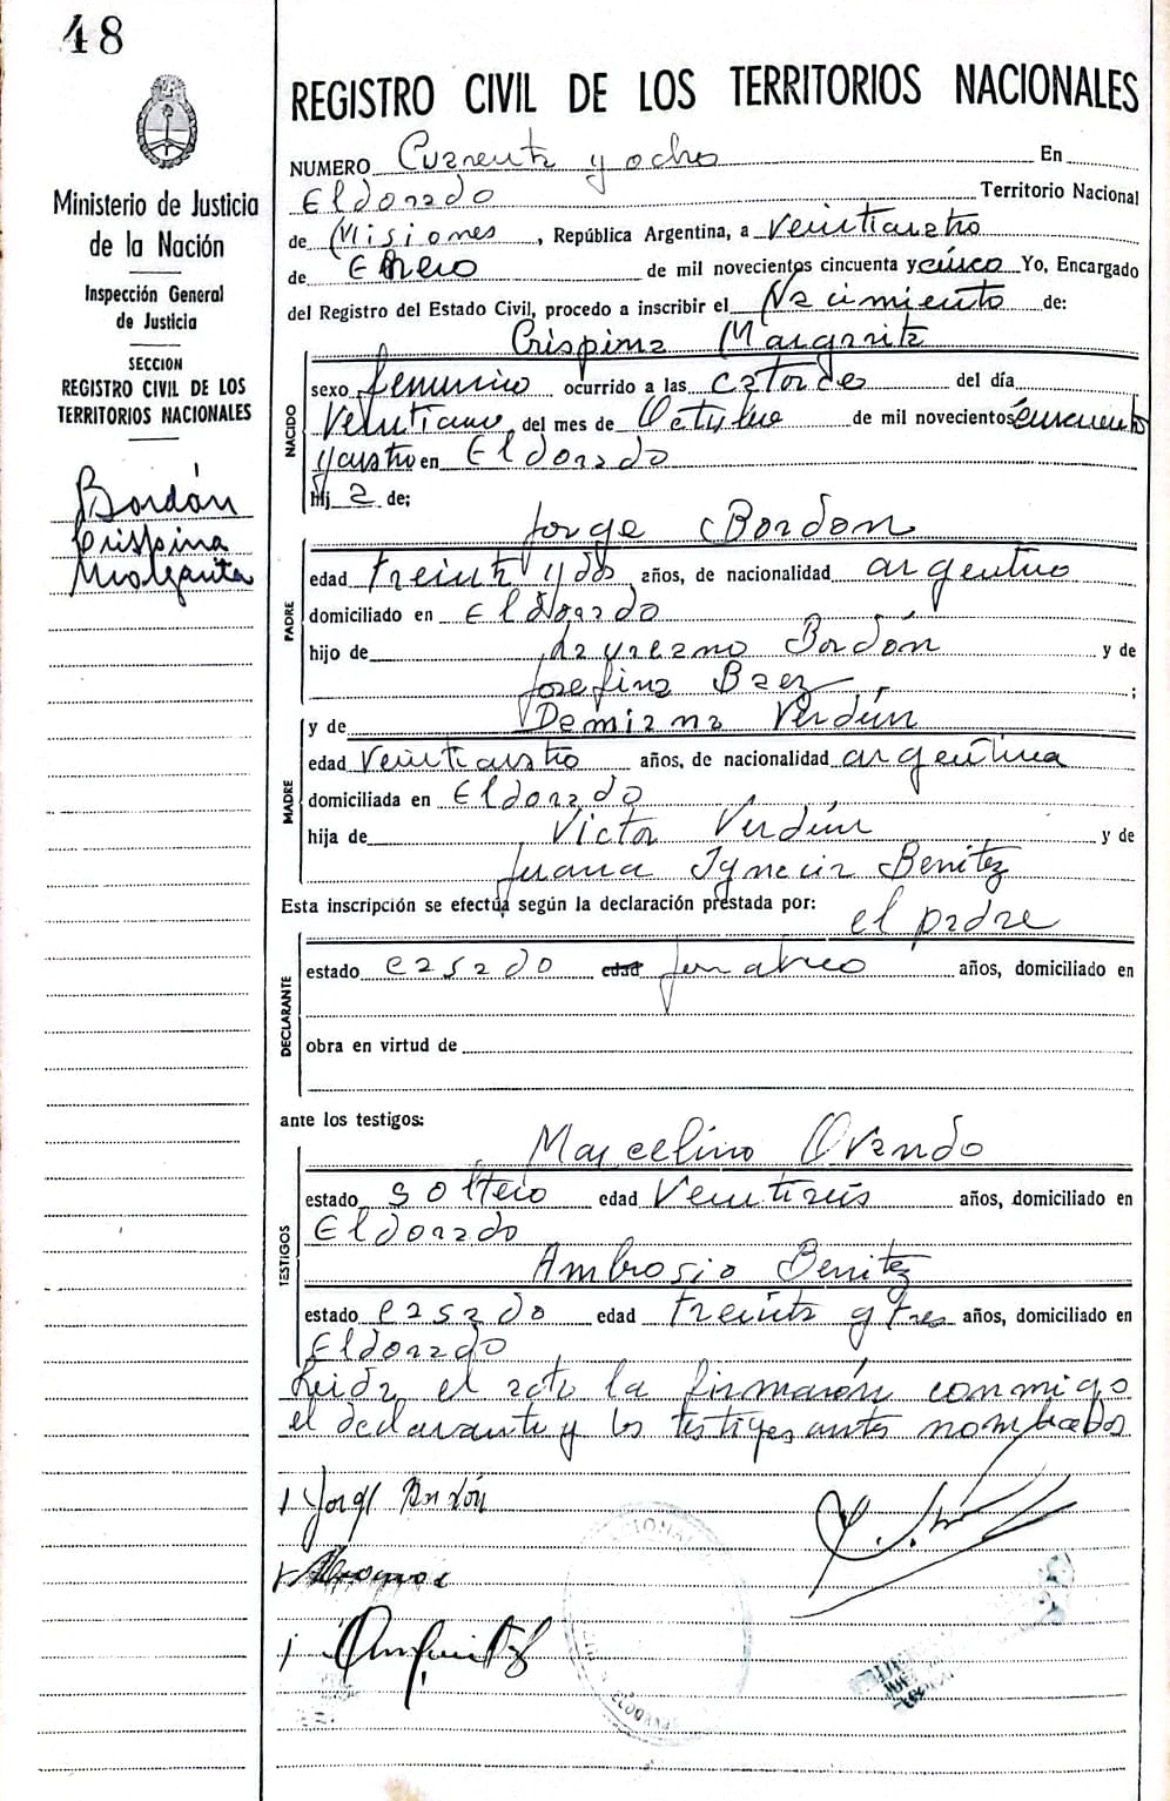 48
Ministerio de Justicia
de la Nación
Inspección General
de Justicia
SECCION
REGISTRO CIVIL DE LOS
TERRITORIOS NACIONALES
Bordán
Crispina
Margarita
REGISTRO CIVIL DE LOS TERRITORIOS NACIONALES
NUMERO Cuarenta y ocho En
Eldorado Territorio Nacional
de Misiones, República Argentina, a veinticuatro
de Enero de mil novecientos cincuenta y cinco Yo, Encargado
del Registro del Estado Civil, procedo a inscribir el Nacimiento de:
Crispina Margarita
NACIDO
sexo femenino ocurrido a las catorce del día
Veinticinco del mes de Octubre de mil novecientos cincuenta
y cuatro en Eldorado
hij a de:
Jorge Bordon
PADRE
edad treinta y dos años, de nacionalidad argentino
domiciliado en Eldorado
hijo de Laureano Bordón y de
Josefina Baez ;
MADRE
y de Demiana Verdún
edad Veinticuatro años, de nacionalidad argentina
domiciliada en Eldorado
hija de Victor Verdún y de
Juana Ignacia Benitez
Esta inscripción se efectúa según la declaración prestada por: el padre
DECLARANTE
estado casado edad años, domiciliado en
obra en virtud de
ante los testigos:
TESTIGOS
Marcelino Ovando
estado soltero edad Veintiseis años, domiciliado en
Eldorado
Ambrosio Benitez
estado casado edad treinta y tres años, domiciliado en
Eldorado
Leida el acta la firmarón conmigo
el declarante y los testigos antes nombrados
Jorge Bordón